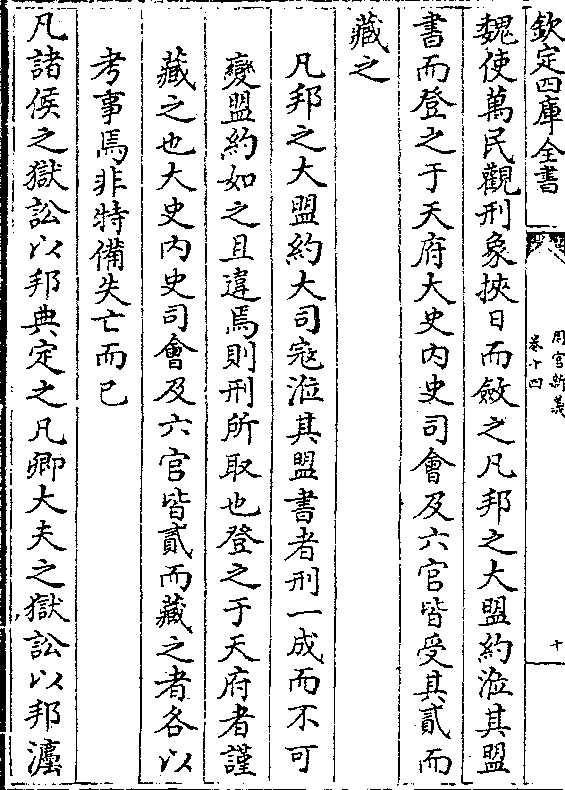 欽定四庫全書
周官新義
卷十四
十
魏使萬民觀刑象挾日而斂之凡邦之大盟約涖其盟
書而登之于天府大史内史司會及六官皆受其貳而
藏之
凡邦之大盟約大司寇涖其盟書者刑一成而不可
變盟約如之且違焉則刑所取也登之于天府者謹
藏之也大史内史司會及六官皆貳而藏之者各以
考事焉非特備失亡而已
凡諸侯之獄訟以邦典定之凡卿大夫之獄訟以邦灋